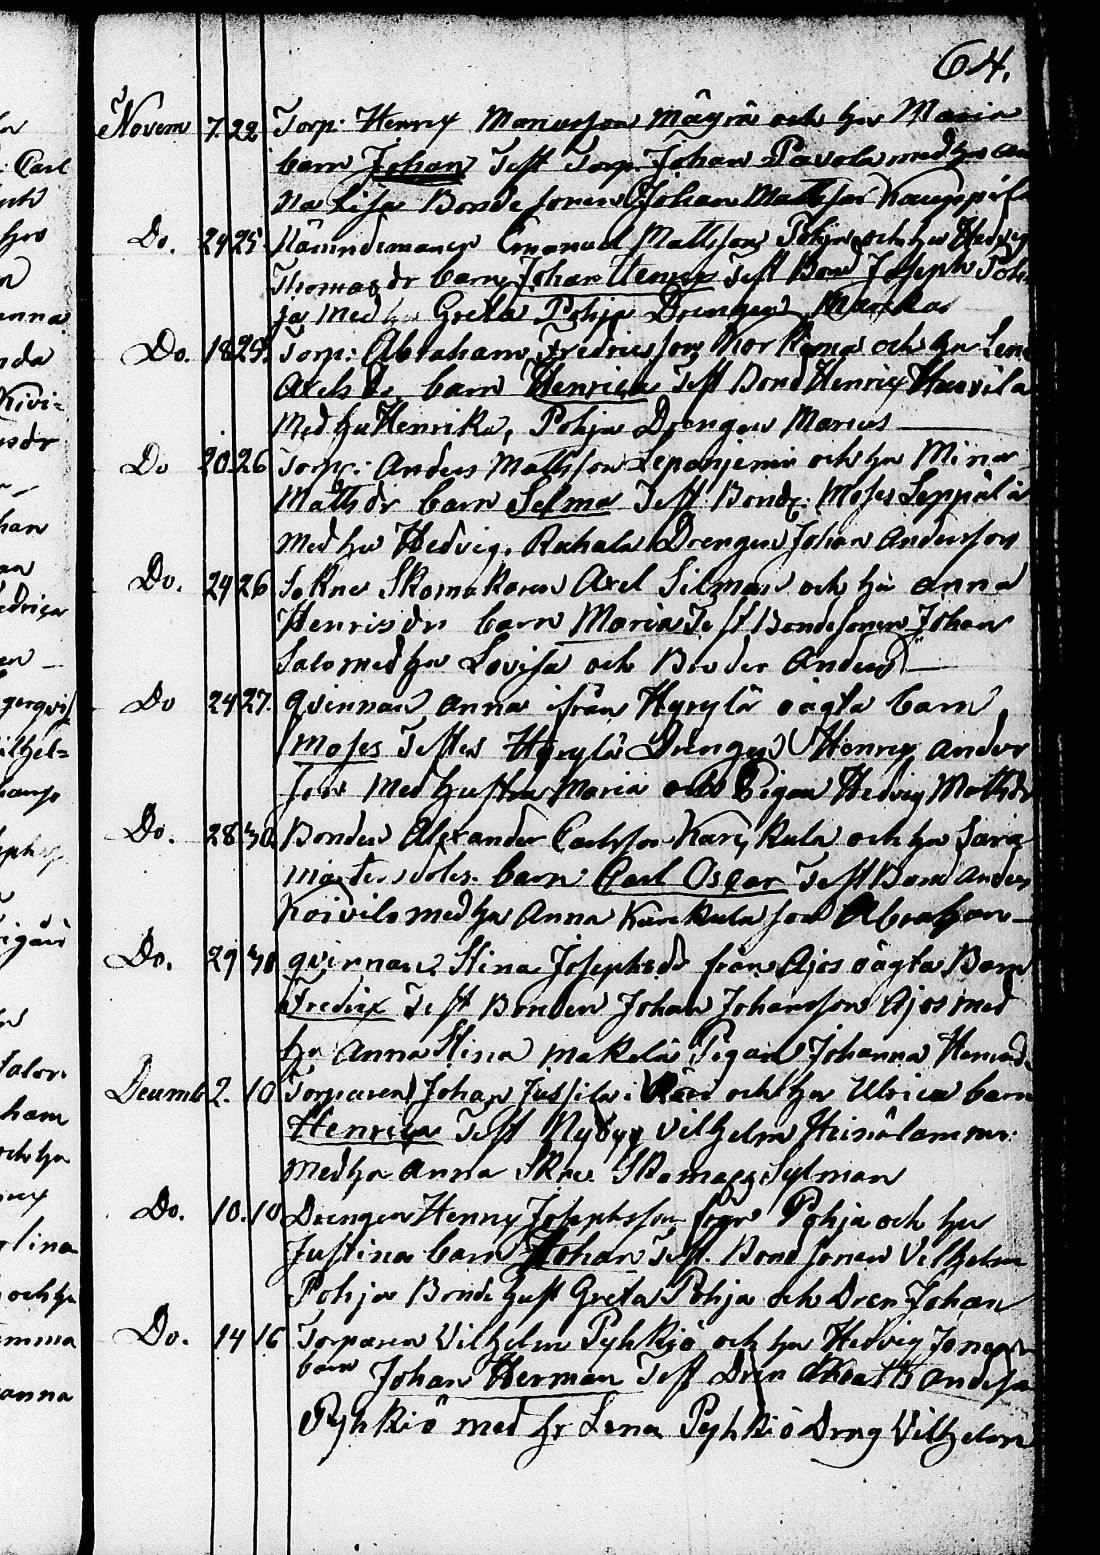 64.
Novem 7. 22 Torp: Henrix Manasson Mäyrä och hu Maria
barn Johan Test Torp Johan Pavola med hu an
na Lisa Bondesonen Johan Mattsson Kauppila
Do. 24 25 Nämndemanen Emanuel Mattsson Pohja och hu Hedvig
Thomasdr barn Johan Henrix Test Bond Joseph Poh
ja med hu Greta Pohja Drengen Markus
Do. 18 25. Torp: Abraham Fredricsson Korkama och hu Lena
Axelsdr barn Henrica Test Bond Henrix Haavila
med hu Henrika, Pohja Drengen Marcus
Do 20. 26 Torp: Anders Mattsson Lepäniemi och hu Mina
Mattsdr barn Selma Test Bond: Moses Leppälä
med hu Hedvig, Rahala Drengen Johan Andersson
Do. 24 26 Sokne Skomakaren Axel Silman och hu anna
Henrisdr barn Maria Test Bondesonen Johan
Salo med hu Lovisa och Broder Anders
Do 24 27. qvinnan anna ifrån Hyrylä oägta barn
Moses Testes Hyrylä Drengen Henrix anders
son med hustru Maria och Pigan Hedvig Mattsdr
Do. 28 30. Bonden Alexander Carlsson Karjkula och hu
barn Carl Oscar Test Bond anders
Koivilo med hu Anna Karjkula son Abraham
Do. 29 30 qvinnan Stina Josephsd från Ajos oägta Barn
Fredrix Test Bonden Johan Johansson Ajos med
hu Anna Stina Makelä Pigan Johanna
Decemb 2. 10 Torparen Johan Jussila i och hu Ulrica barn
Henrica Test Nybyg Vilhelm Heinälammi
med hu anna Skne Skomag: Sylman
Do. 10. 10 Drengen Henrix Josephsson från Pohja och hu
Justina barn Johan Test. Bondsonen Vilhelm
Pohja Bonde hust Greta Pohja och Dren Johan
Do. 14 16 Torparen Vilhelm Pyhkiö och hu Hedvig
barn Johan Herman Test Dren Matts
Pyhkiö med hu Lena Pyhkiö Dreng Vilhelm